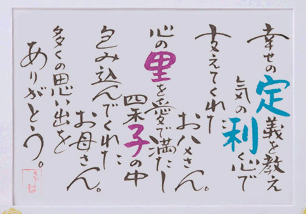 幸せの定義を教え
気の利く心で
支えてくれた
お父さん。
心の里を愛で満たし
四季子の中
包み込んでくれた…
お母さん。
多くの思い出を
ありがとう。